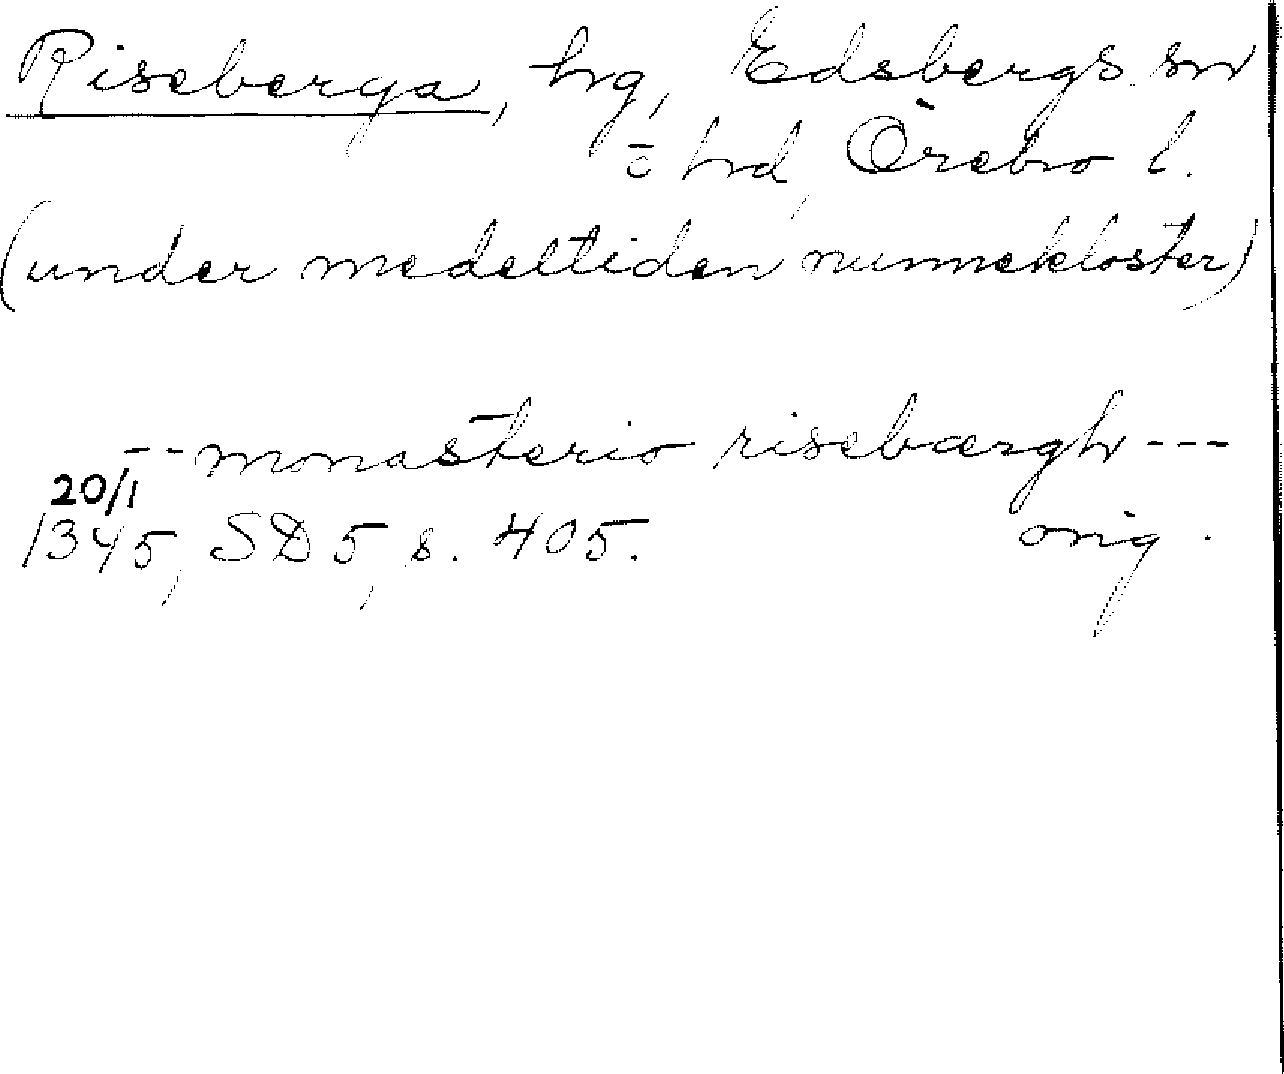 Riseberga, hg, Edsbergs sn
o hd, Örebro l.
(under medeltiden nunnekloster)
-- monasterio risebærgh ---
20/1
1345, SD 5, s. 405. orig.